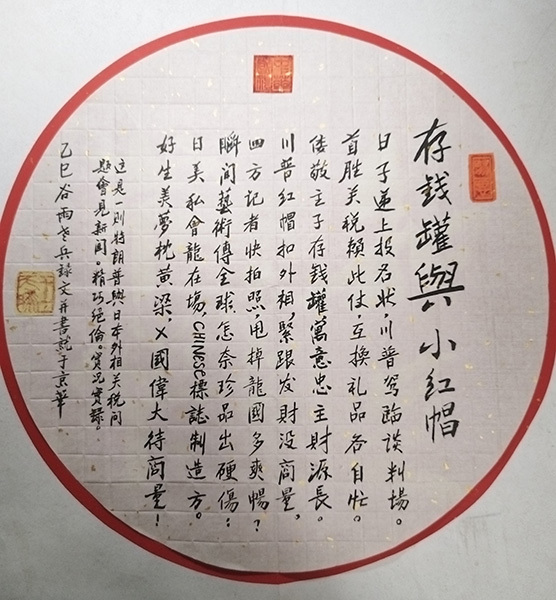 存钱罐與小红帽
日子递上投名状,川普驾臨谈判場。
首胜关税赖此仗,互换礼品各自忙。
倭敬主子存钱罐,萬意忠主财源長。
川普红帽扣外相,緊跟发财没商量。
四方记者快拍照,甩掉龍國多爽暢?
瞬间藝術傳全球,怎奈珍品出硬傷:
日美私會龍在場,CHINESE標誌制造方。
好生美夢枕黄梁,乂國偉大待商量!
这是一则特朗普與日本外相关税问
题會見新闻。精巧绝倫。實况實録。
乙巳谷雨老兵録文并書就于京華